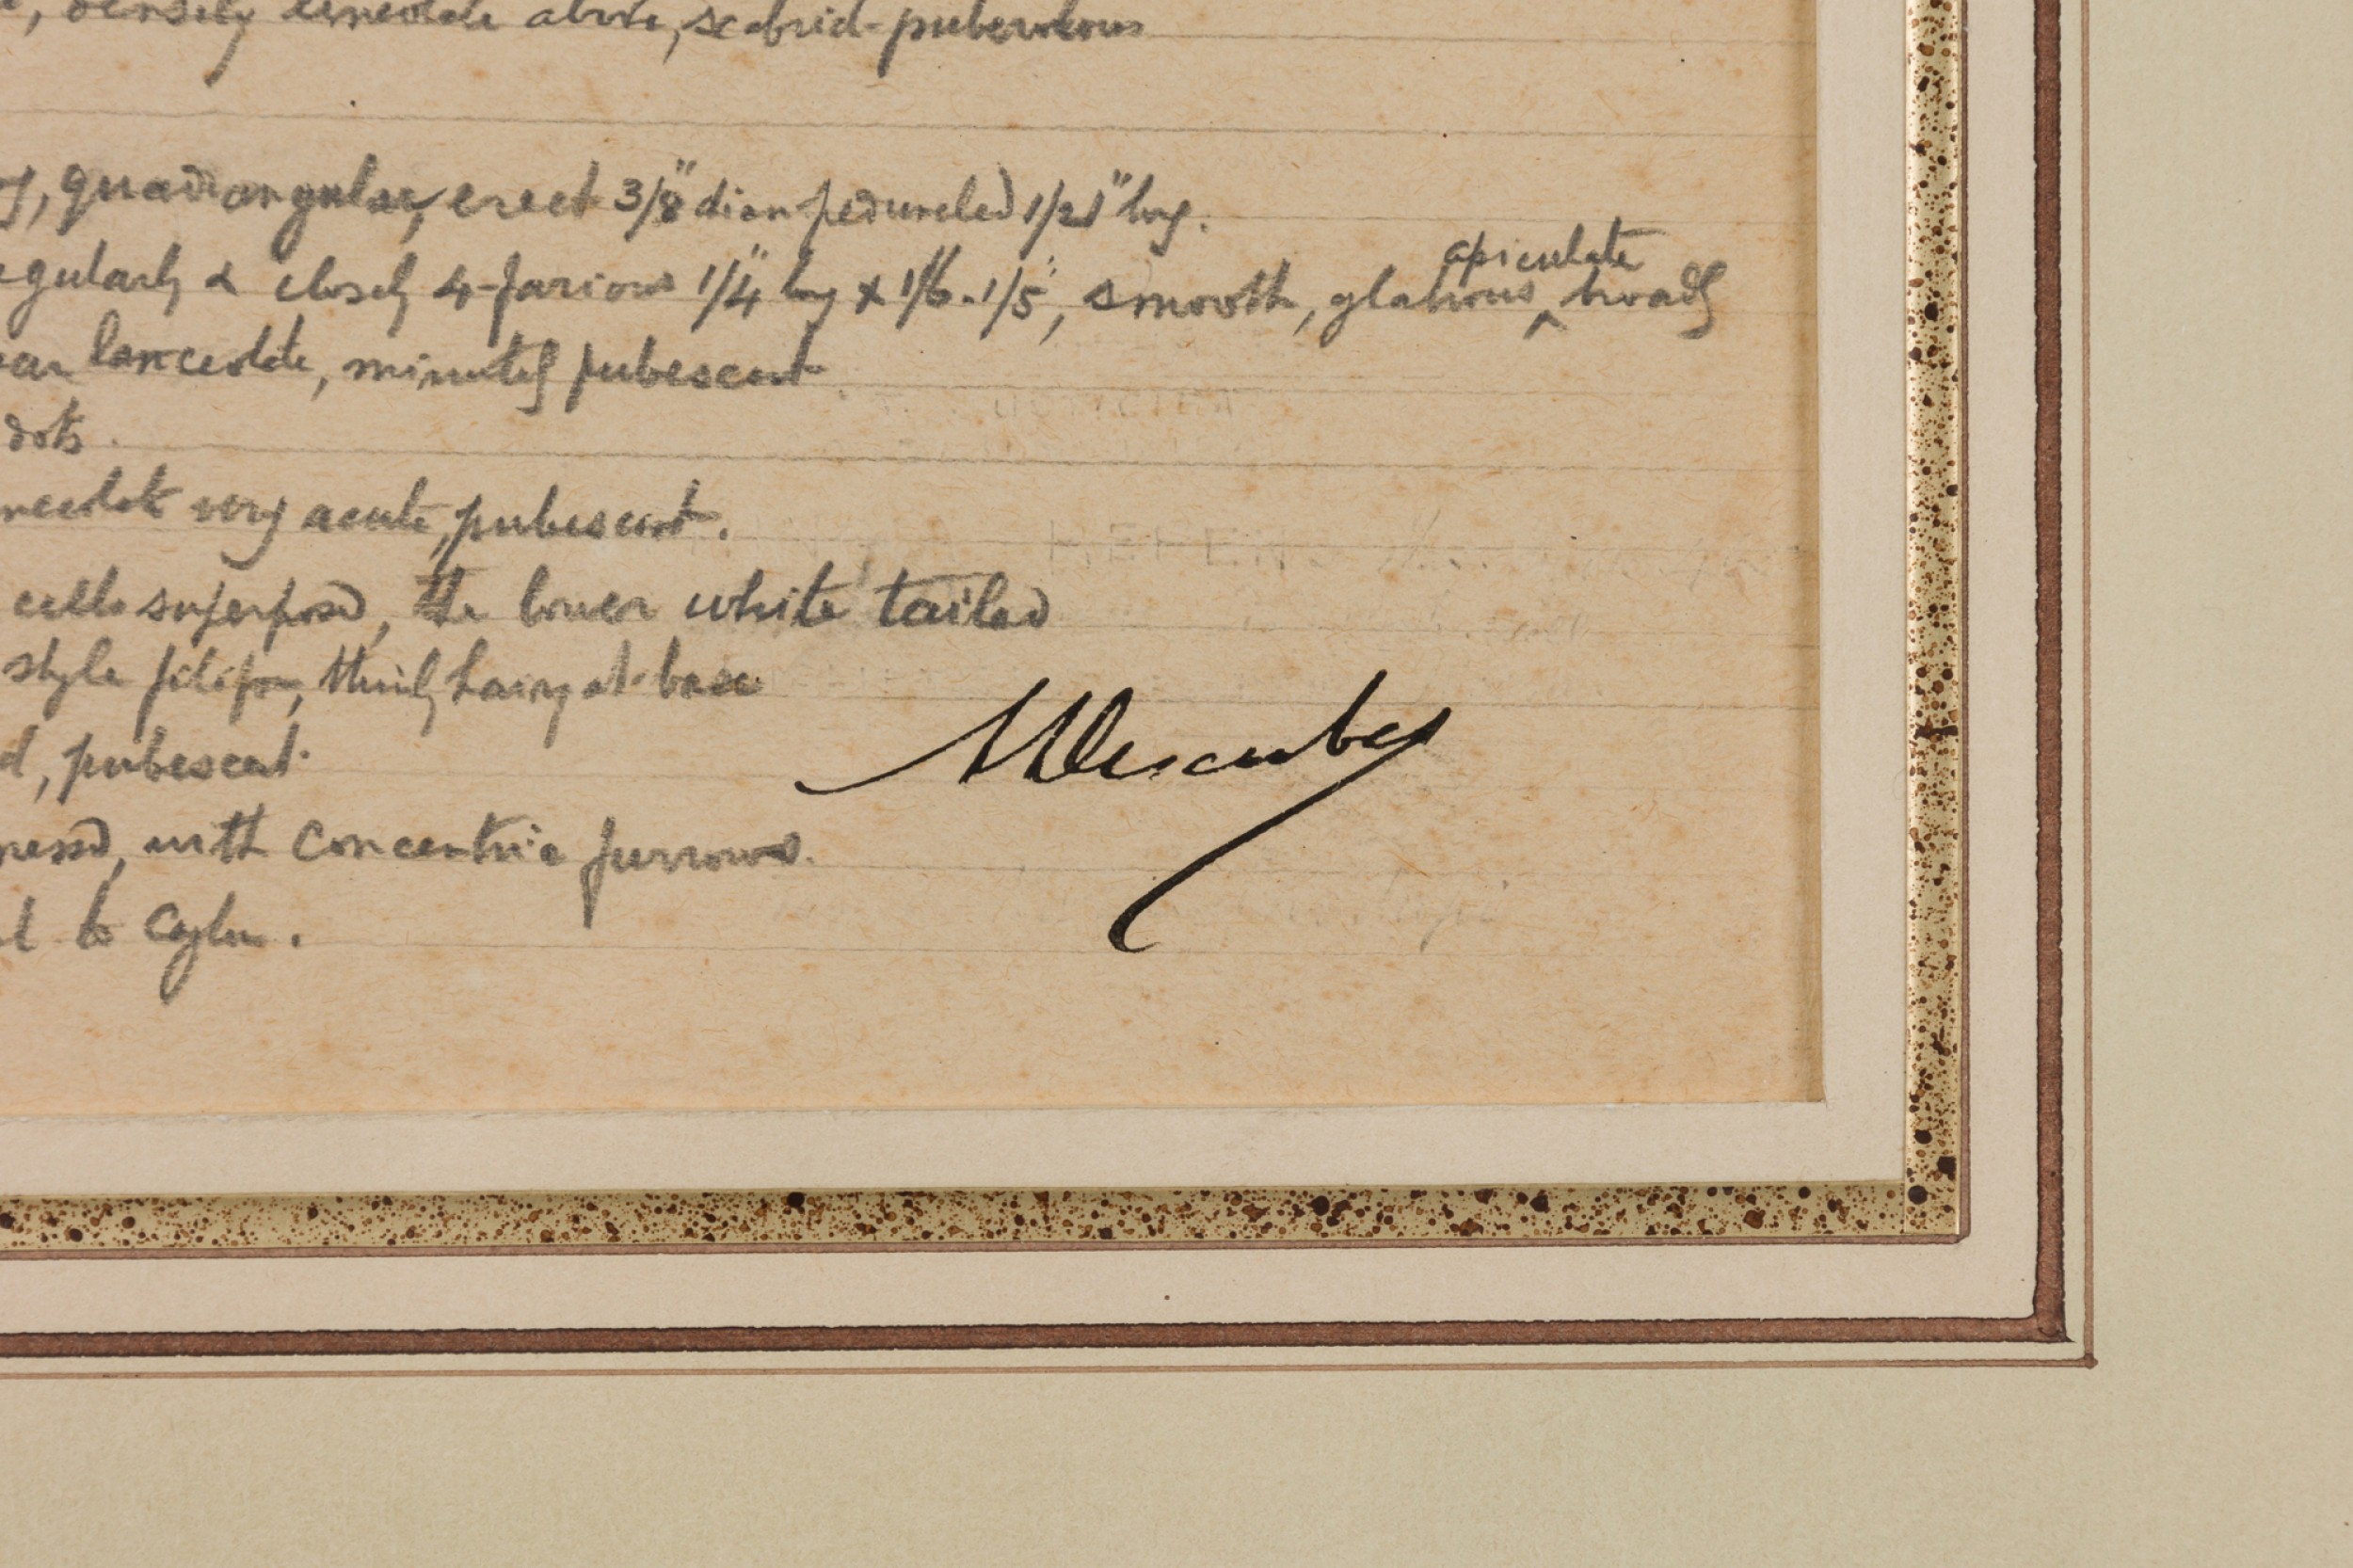 , densely lineolate above, scabrid-puberulous
, quadrangular, erect 3/8" diam peduncled 1/2-1" long.
egularly & closely 4-farious 1/4" long x 1/6-1/5", smooth, glabrous apiculate broadly
ear lanceolate, minutely pubescent
dots.
neolate very acute, pubescent.
cells superposed, the lower white tailed
style filiform, thinly hairy at base
d, pubescent.
ressed, with concentric furrows.
l to Ceylon.